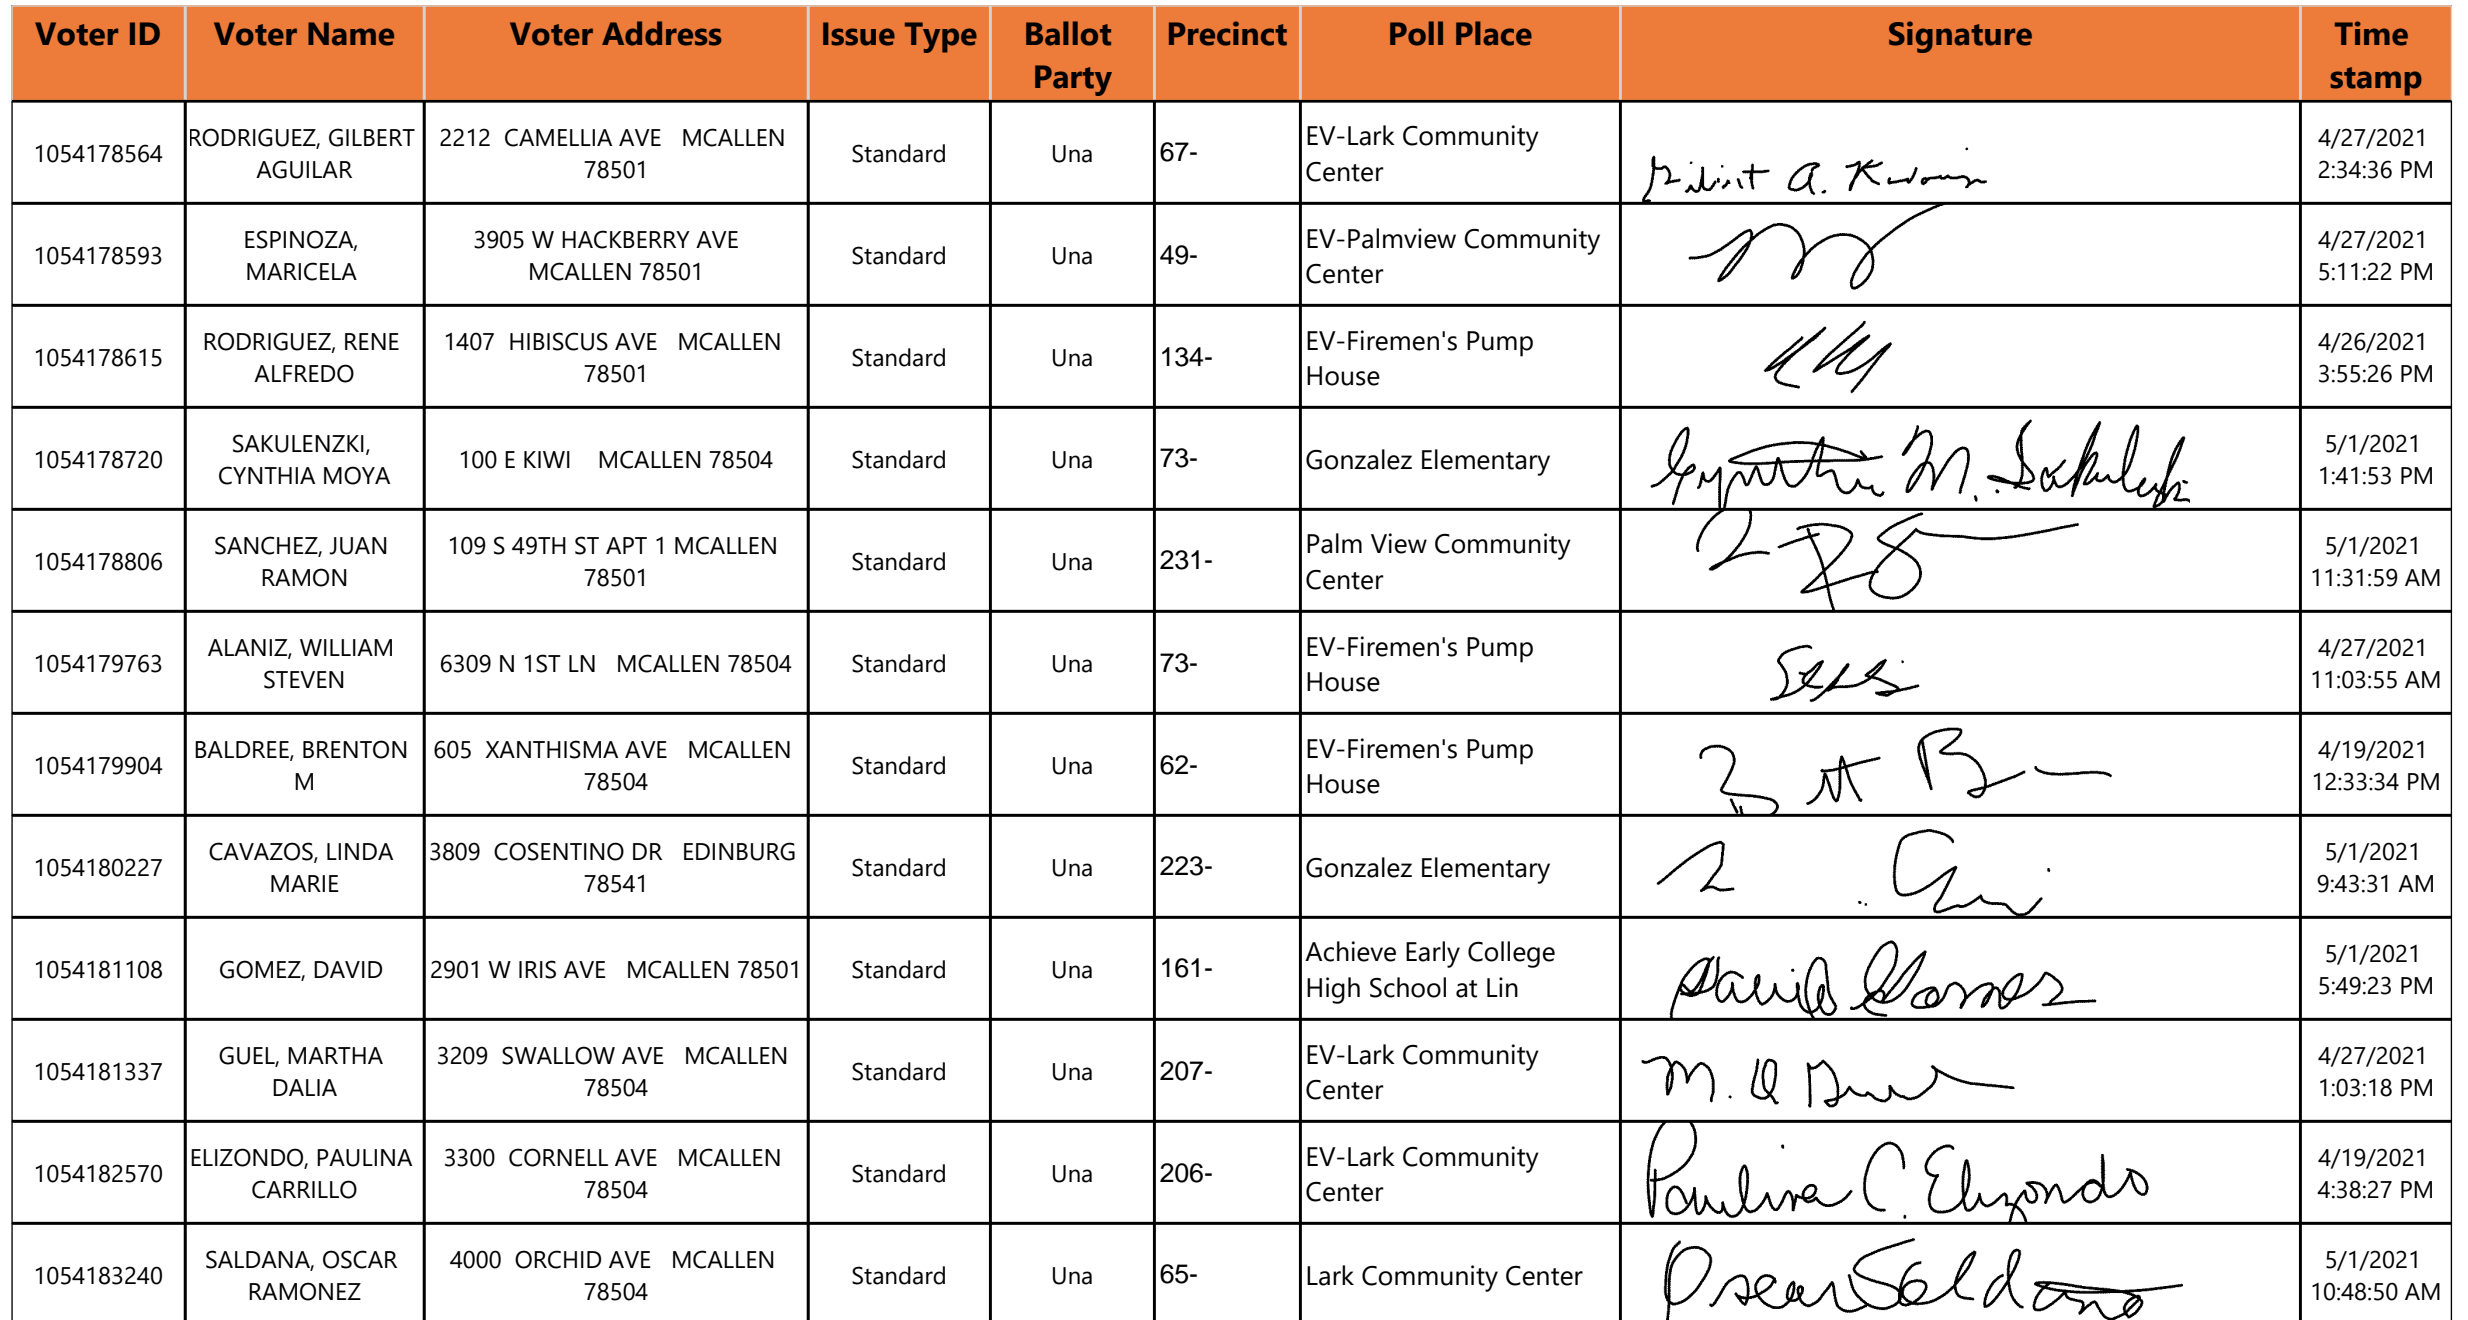 Voter ID Voter Name Voter Address Issue Type Ballot Party Precinct Poll Place Signature Time stamp
1054178564 RODRIGUEZ, GILBERT AGUILAR 2212 CAMELLIA AVE MCALLEN 78501 Standard Una 67- EV-Lark Community Center 4/27/2021 2:34:36 PM
1054178593 ESPINOZA, MARICELA 3905 W HACKBERRY AVE MCALLEN 78501 Standard Una 49- EV-Palmview Community Center 4/27/2021 5:11:22 PM
1054178615 RODRIGUEZ, RENE ALFREDO 1407 HIBISCUS AVE MCALLEN 78501 Standard Una 134- EV-Firemen's Pump House 4/26/2021 3:55:26 PM
1054178720 SAKULENZKI, CYNTHIA MOYA 100 E KIWI MCALLEN 78504 Standard Una 73- Gonzalez Elementary 5/1/2021 1:41:53 PM
1054178806 SANCHEZ, JUAN RAMON 109 S 49TH ST APT 1 MCALLEN 78501 Standard Una 231- Palm View Community Center 5/1/2021 11:31:59 AM
1054179763 ALANIZ, WILLIAM STEVEN 6309 N 1ST LN MCALLEN 78504 Standard Una 73- EV-Firemen's Pump House 4/27/2021 11:03:55 AM
1054179904 BALDREE, BRENTON M 605 XANTHISMA AVE MCALLEN 78504 Standard Una 62- EV-Firemen's Pump House 4/19/2021 12:33:34 PM
1054180227 CAVAZOS, LINDA MARIE 3809 COSENTINO DR EDINBURG 78541 Standard Una 223- Gonzalez Elementary 5/1/2021 9:43:31 AM
1054181108 GOMEZ, DAVID 2901 W IRIS AVE MCALLEN 78501 Standard Una 161- Achieve Early College High School at Lin David Gomez 5/1/2021 5:49:23 PM
1054181337 GUEL, MARTHA DALIA 3209 SWALLOW AVE MCALLEN 78504 Standard Una 207- EV-Lark Community Center 4/27/2021 1:03:18 PM
1054182570 ELIZONDO, PAULINA CARRILLO 3300 CORNELL AVE MCALLEN 78504 Standard Una 206- EV-Lark Community Center Paulina C. Elizondo 4/19/2021 4:38:27 PM
1054183240 SALDANA, OSCAR RAMONEZ 4000 ORCHID AVE MCALLEN 78504 Standard Una 65- Lark Community Center Oscar Saldana 5/1/2021 10:48:50 AM